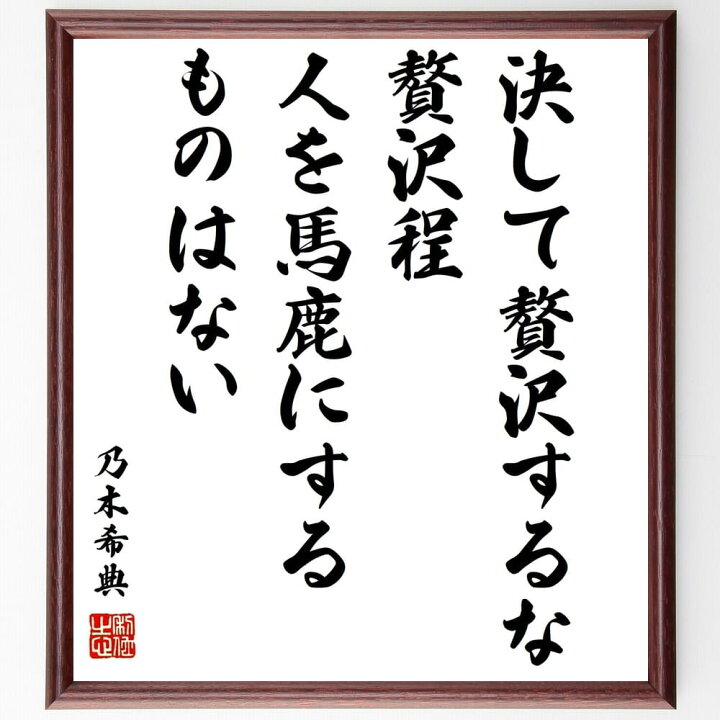 決して贅沢するな
贅沢程
人を馬鹿にする
ものはない
乃木希典